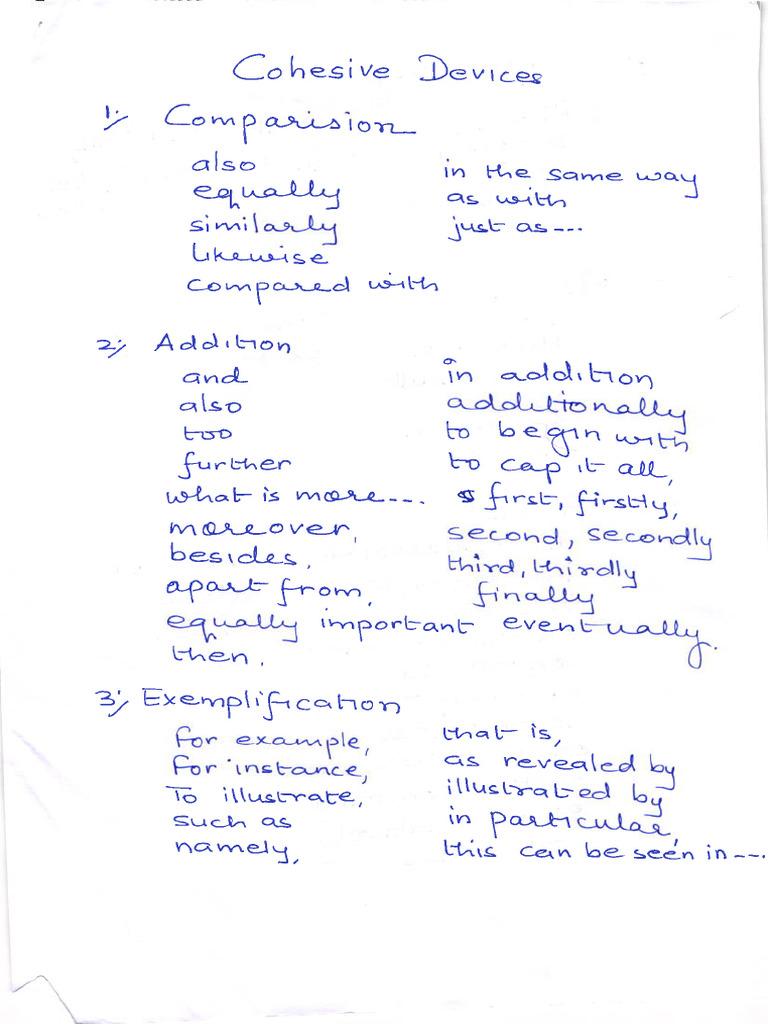 Cohesive Devices
1:/ Comparision
also
equally
similarly
likewise
compared with
in the same way
as with
just as---
2:/ Addition
and
also
too
further
what is more---.
moreover,
besides,
apart from,
equally important
then.
in addition
additionally
to begin with
to cap it all,
first, firstly,
second, secondly
third, thirdly
finally
eventually.
3:/ Exemplification
for example,
for instance,
To illustrate,
such as
namely,
that is,
as revealed by
illustrated by
in particular,
this can be seen in---.